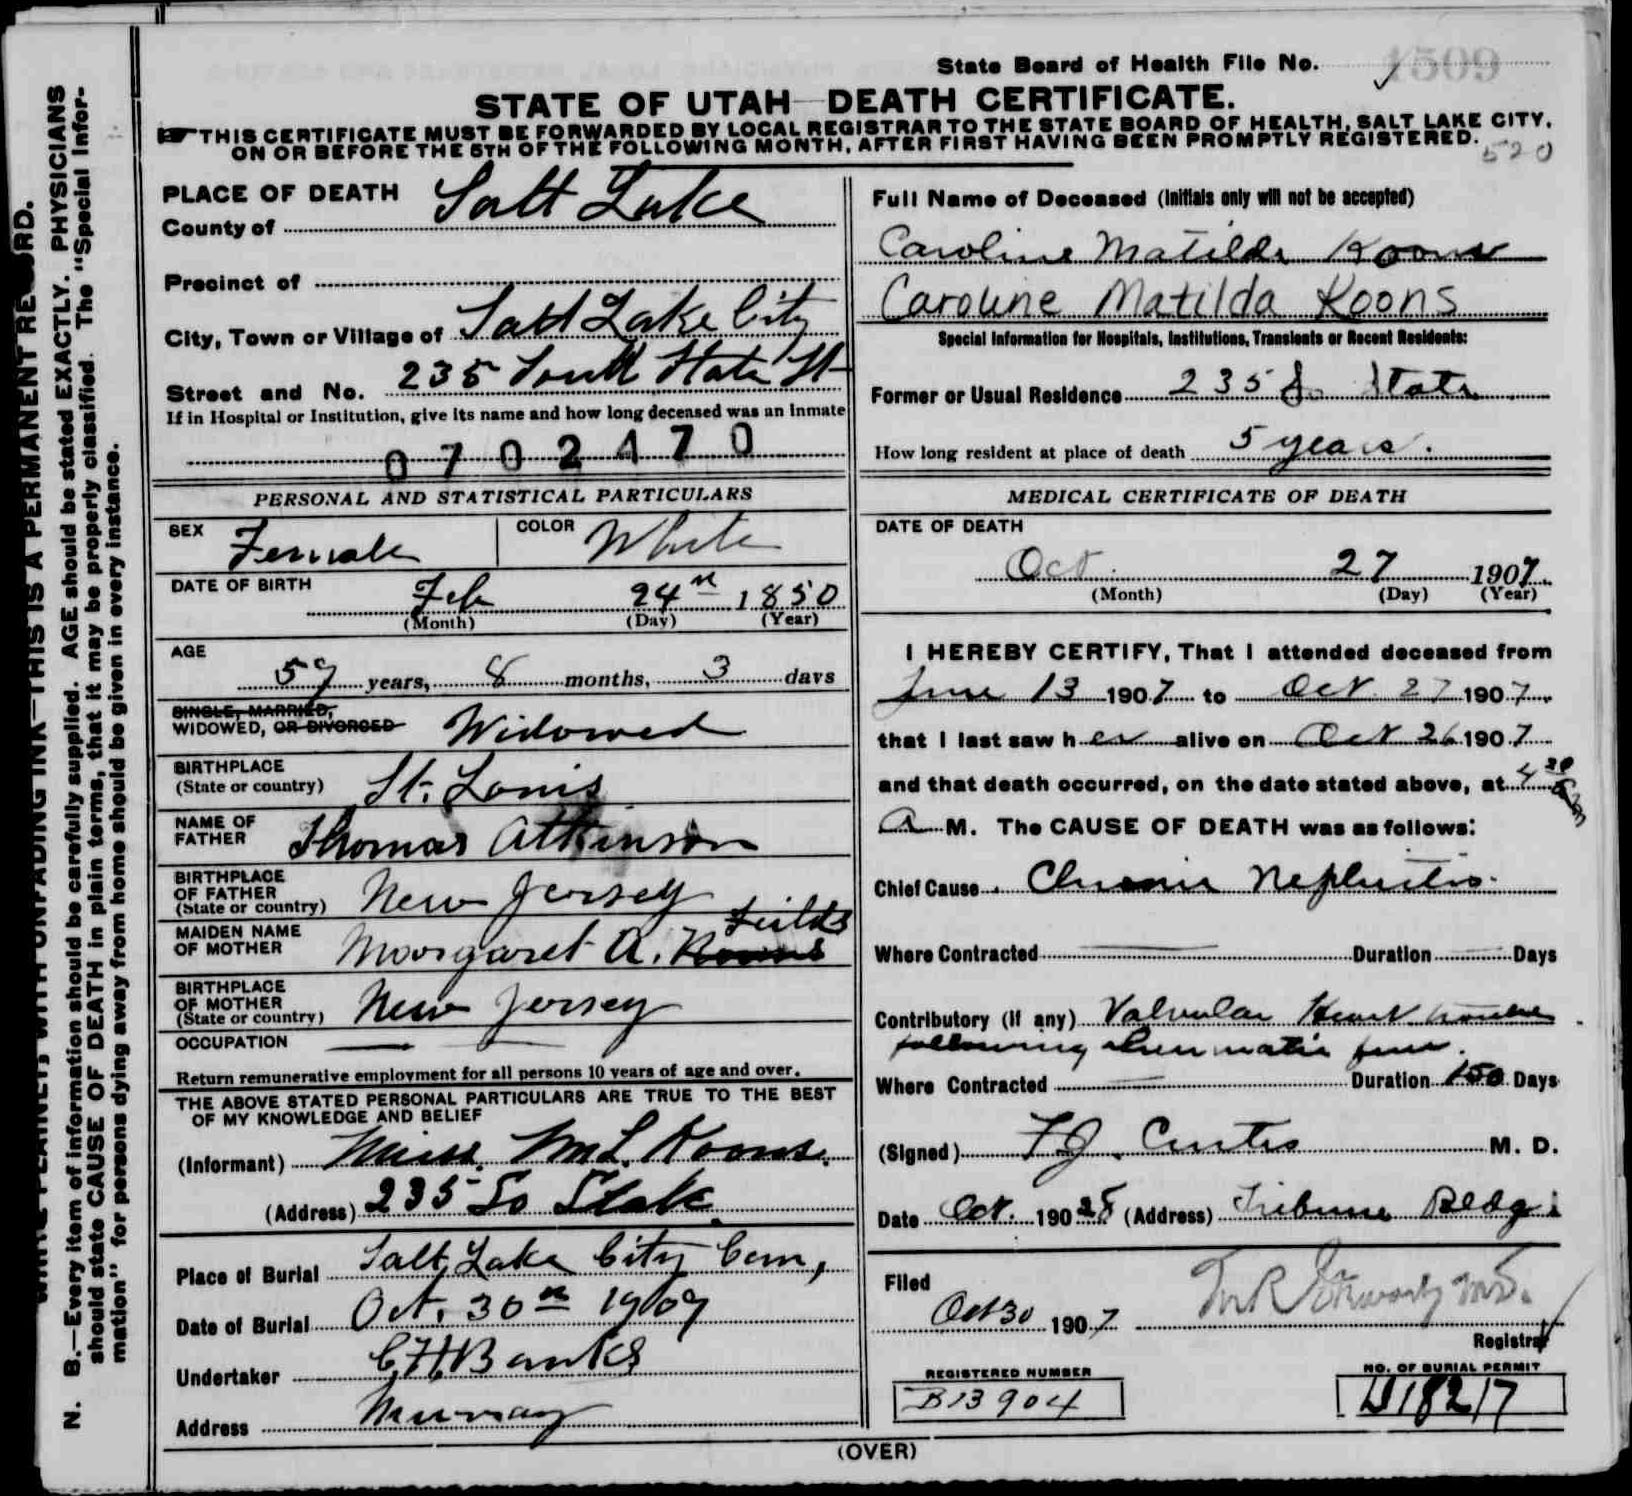 State Board of Health File No. 1509
STATE OF UTAH—DEATH CERTIFICATE.
THIS CERTIFICATE MUST BE FORWARDED BY LOCAL REGISTRAR TO THE STATE BOARD OF HEALTH, SALT LAKE CITY,
ON OR BEFORE THE 5TH OF THE FOLLOWING MONTH, AFTER FIRST HAVING BEEN PROMPTLY REGISTERED.
520
N. B.—Every item of information should be carefully supplied. AGE should be stated EXACTLY. PHYSICIANS
should state CAUSE OF DEATH in plain terms, that it may be properly classified. The "Special Infor-
mation" for persons dying away from home should be given in every instance.
WITH UNFADING INK—THIS IS A PERMANENT
PLACE OF DEATH
County of Salt Lake
Precinct of
City, Town or Village of Salt Lake City
Street and No. 235 South State St
If in Hospital or Institution, give its name and how long deceased was an Inmate
0702470
PERSONAL AND STATISTICAL PARTICULARS
SEX Female COLOR White
DATE OF BIRTH Feb 24th 1850
(Month) (Day) (Year)
AGE
57 years, 8 months, 3 days
SINGLE, MARRIED,
WIDOWED, OR DIVORCED Widowed
BIRTHPLACE
(State or country) St. Louis
NAME OF
FATHER Thomas Atkinson
BIRTHPLACE
OF FATHER
(State or country) New Jersey
MAIDEN NAME
OF MOTHER Margaret A. Koons Feilds
BIRTHPLACE
OF MOTHER
(State or country) New Jersey
OCCUPATION
Return remunerative employment for all persons 10 years of age and over.
THE ABOVE STATED PERSONAL PARTICULARS ARE TRUE TO THE BEST
OF MY KNOWLEDGE AND BELIEF
(Informant) Miss. Wm L. Koons.
(Address) 235 So State
Place of Burial Salt Lake City Cem,
Date of Burial Oct. 30th 1907
Undertaker C. H. Banks
Address Murray
Full Name of Deceased (Initials only will not be accepted)
Caroline Matilda Koons
Caroline Matilda Koons
Special Information for Hospitals, Institutions, Transients or Recent Residents:
Former or Usual Residence 235 So State
How long resident at place of death 5 years.
MEDICAL CERTIFICATE OF DEATH
DATE OF DEATH
Oct. 27 1907
(Month) (Day) (Year)
I HEREBY CERTIFY, That I attended deceased from
June 13 1907 to Oct 27 1907
that I last saw her alive on Oct 26 1907
and that death occurred, on the date stated above, at 4
A M. The CAUSE OF DEATH was as follows:
Chief Cause Chronic Nephritis.
Where Contracted Duration Days
Contributory (if any) Valvular Heart trouble
following rheumatic fever.
Where Contracted Duration 150 Days
(Signed) F J. Curtis M. D.
Date Oct. 190 28 (Address) Tribune Bldg.
Filed
Oct 30 1907
Registrar
REGISTERED NUMBER
B13904
NO. OF BURIAL PERMIT
D18217
(OVER)